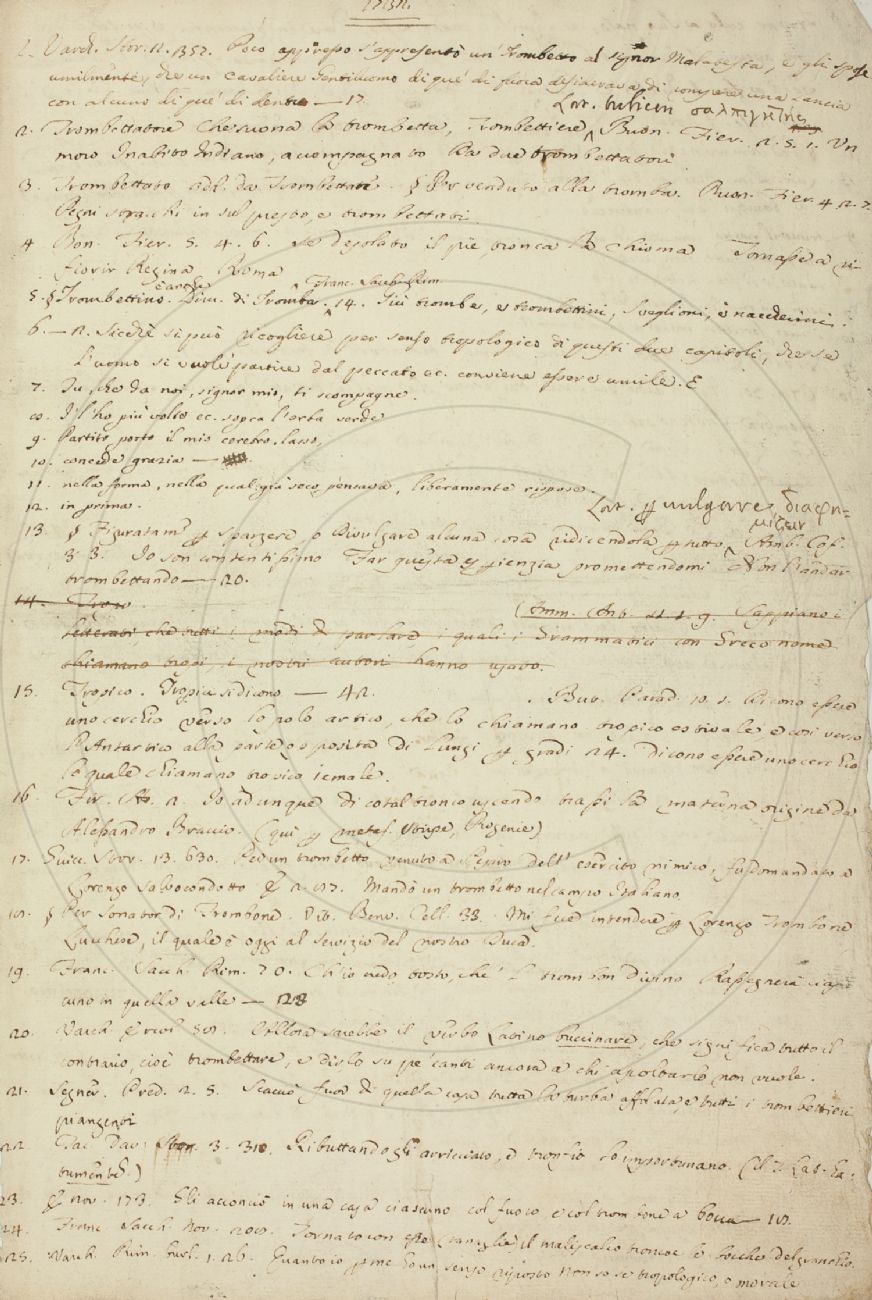 1. Varch. Stor. 12. 352. Poco appresso s'appresentò un Trombetto al signor Malatesta, e gli spose
umilmente, che un cavaliere Gentiluomo di que' di fuora desiderava di romper una lancia
con alcuno di que' di dentro — 17.
Lat. tubicen σαλπιγκτής
2. Trombettatore Che suona la trombetta, Trombettiere ^ Buon. Fier. 2. 5. 1. Un
moro In abito Indiano, accompagnato Da due trombettatori
3. Trombettato add. da Trombettare. § Per venduto alla tromba. Buon. Fier. 4. 2. 7
Pegni stracchi in sul presto, e trombettati.
4 Bon. Fier. 5. 4. 6. Se desolato il piè, tronca la chioma Tornasse a ri-
fiorir Regina Roma
^ Franc. Sacch. Rim.
5. § Trombettino. è anche Dim. di Tromba. ^ 14. Più trombe, e trombettini, Sveglioni, e naccherini.
6. — 2. Sicchè si può ricogliere per senso tropologico di questi due capitoli, che se
l'uomo si vuole partire dal peccato ec. conviene essere umile. E
7. Tu, che da noi, signor mio, ti scompagne.
8. I' l'ho più volte ec. sopra l'erba verde
9. Partito porto il mio cerebro, lasso,
10. concede grazia —
11. nella forma, nella qual già seco pensava, liberamente rispose.
12. in prima.
Lat. pvulgare, διαφη-
μίζειν
13. § Figuratam. p spargere, o divulgare alcuna cosa ridicendola p tutto ^ Amb. Cof.
3. 3. Io son contentissimo Far questa spienzia promettendomi Non l'andar
trombettando — 20.
14. Tropo. (Amm. Ant. 11. 1. 9. Sappiano i
letterati, che tutti i modi di parlare, i quali i Grammatici con Greco nome
chiamano tropi, i nostri autori hanno usato.
15. Tropico. Tropici si dicono — 42. . But. Parad. 10. 1. Dicono essere
uno cerchio verso lo polo artico, che lo chiamano tropico estivale e così verso
l'Antartico alla parte opposita di lungi p gradi 24. dicono essere uno cerchio
lo quale chiamano tropico iemale.
16. Fir. As. 2. Io adunque di cotal tronco uscendo trassi la materna origine da
Alessandro Braccio. (qui p metaf. Stirpe, Progenie)
17. Guicc. Stor. 13. 630. Per un trombetto venuto a Pesaro dell' esercito nimico, fu domandato a
Lorenzo salvocondotto E 2. 87. Mandò un trombetto nel campo Italiano
18. § Per sonator di Trombone. Vit. Benv. Cell. 33. Mi fece intendere p Lorenzo Trombone
Lucchese, il quale è oggi al servizio del nostro Duca.
19. Franc. Sacch. Rim. 70. Ch'io credo tosto, che 'l trombon divino Rassegnerà cia-
cuno in quella valle — 128
20. Varch. Ercol. 58. Allora sarebbe il verbo Latino buccinare, che significa tutto il
contrario, cioè trombettare, e dirlo su pe' canti ancora a chi ascoltarlo non vuole.
21. Segner. Pred. 2. 5. Scacciò fuor di quella casa tutta la turba affollata, e tutti i trombettieri
piangenti
22. Tac. Dav. Stor. 3. 310. Ributtandogli arricciato, e tronfio lo importunano. (il T. Lat. ha:
tumentem)
23. E nov. 173. Gli acconciò in una casa ciascuno col fuoco e col trombone a bocca — 18.
24. Franc. Sacch. Nov. 208. Tornato con esse tanaglie il maliscalco troncoe le bocche del granchio.
25. Varch. Rim. burl. 1. 26. Quanto io p me ho un senso riposto Non so se tropologico, o morale